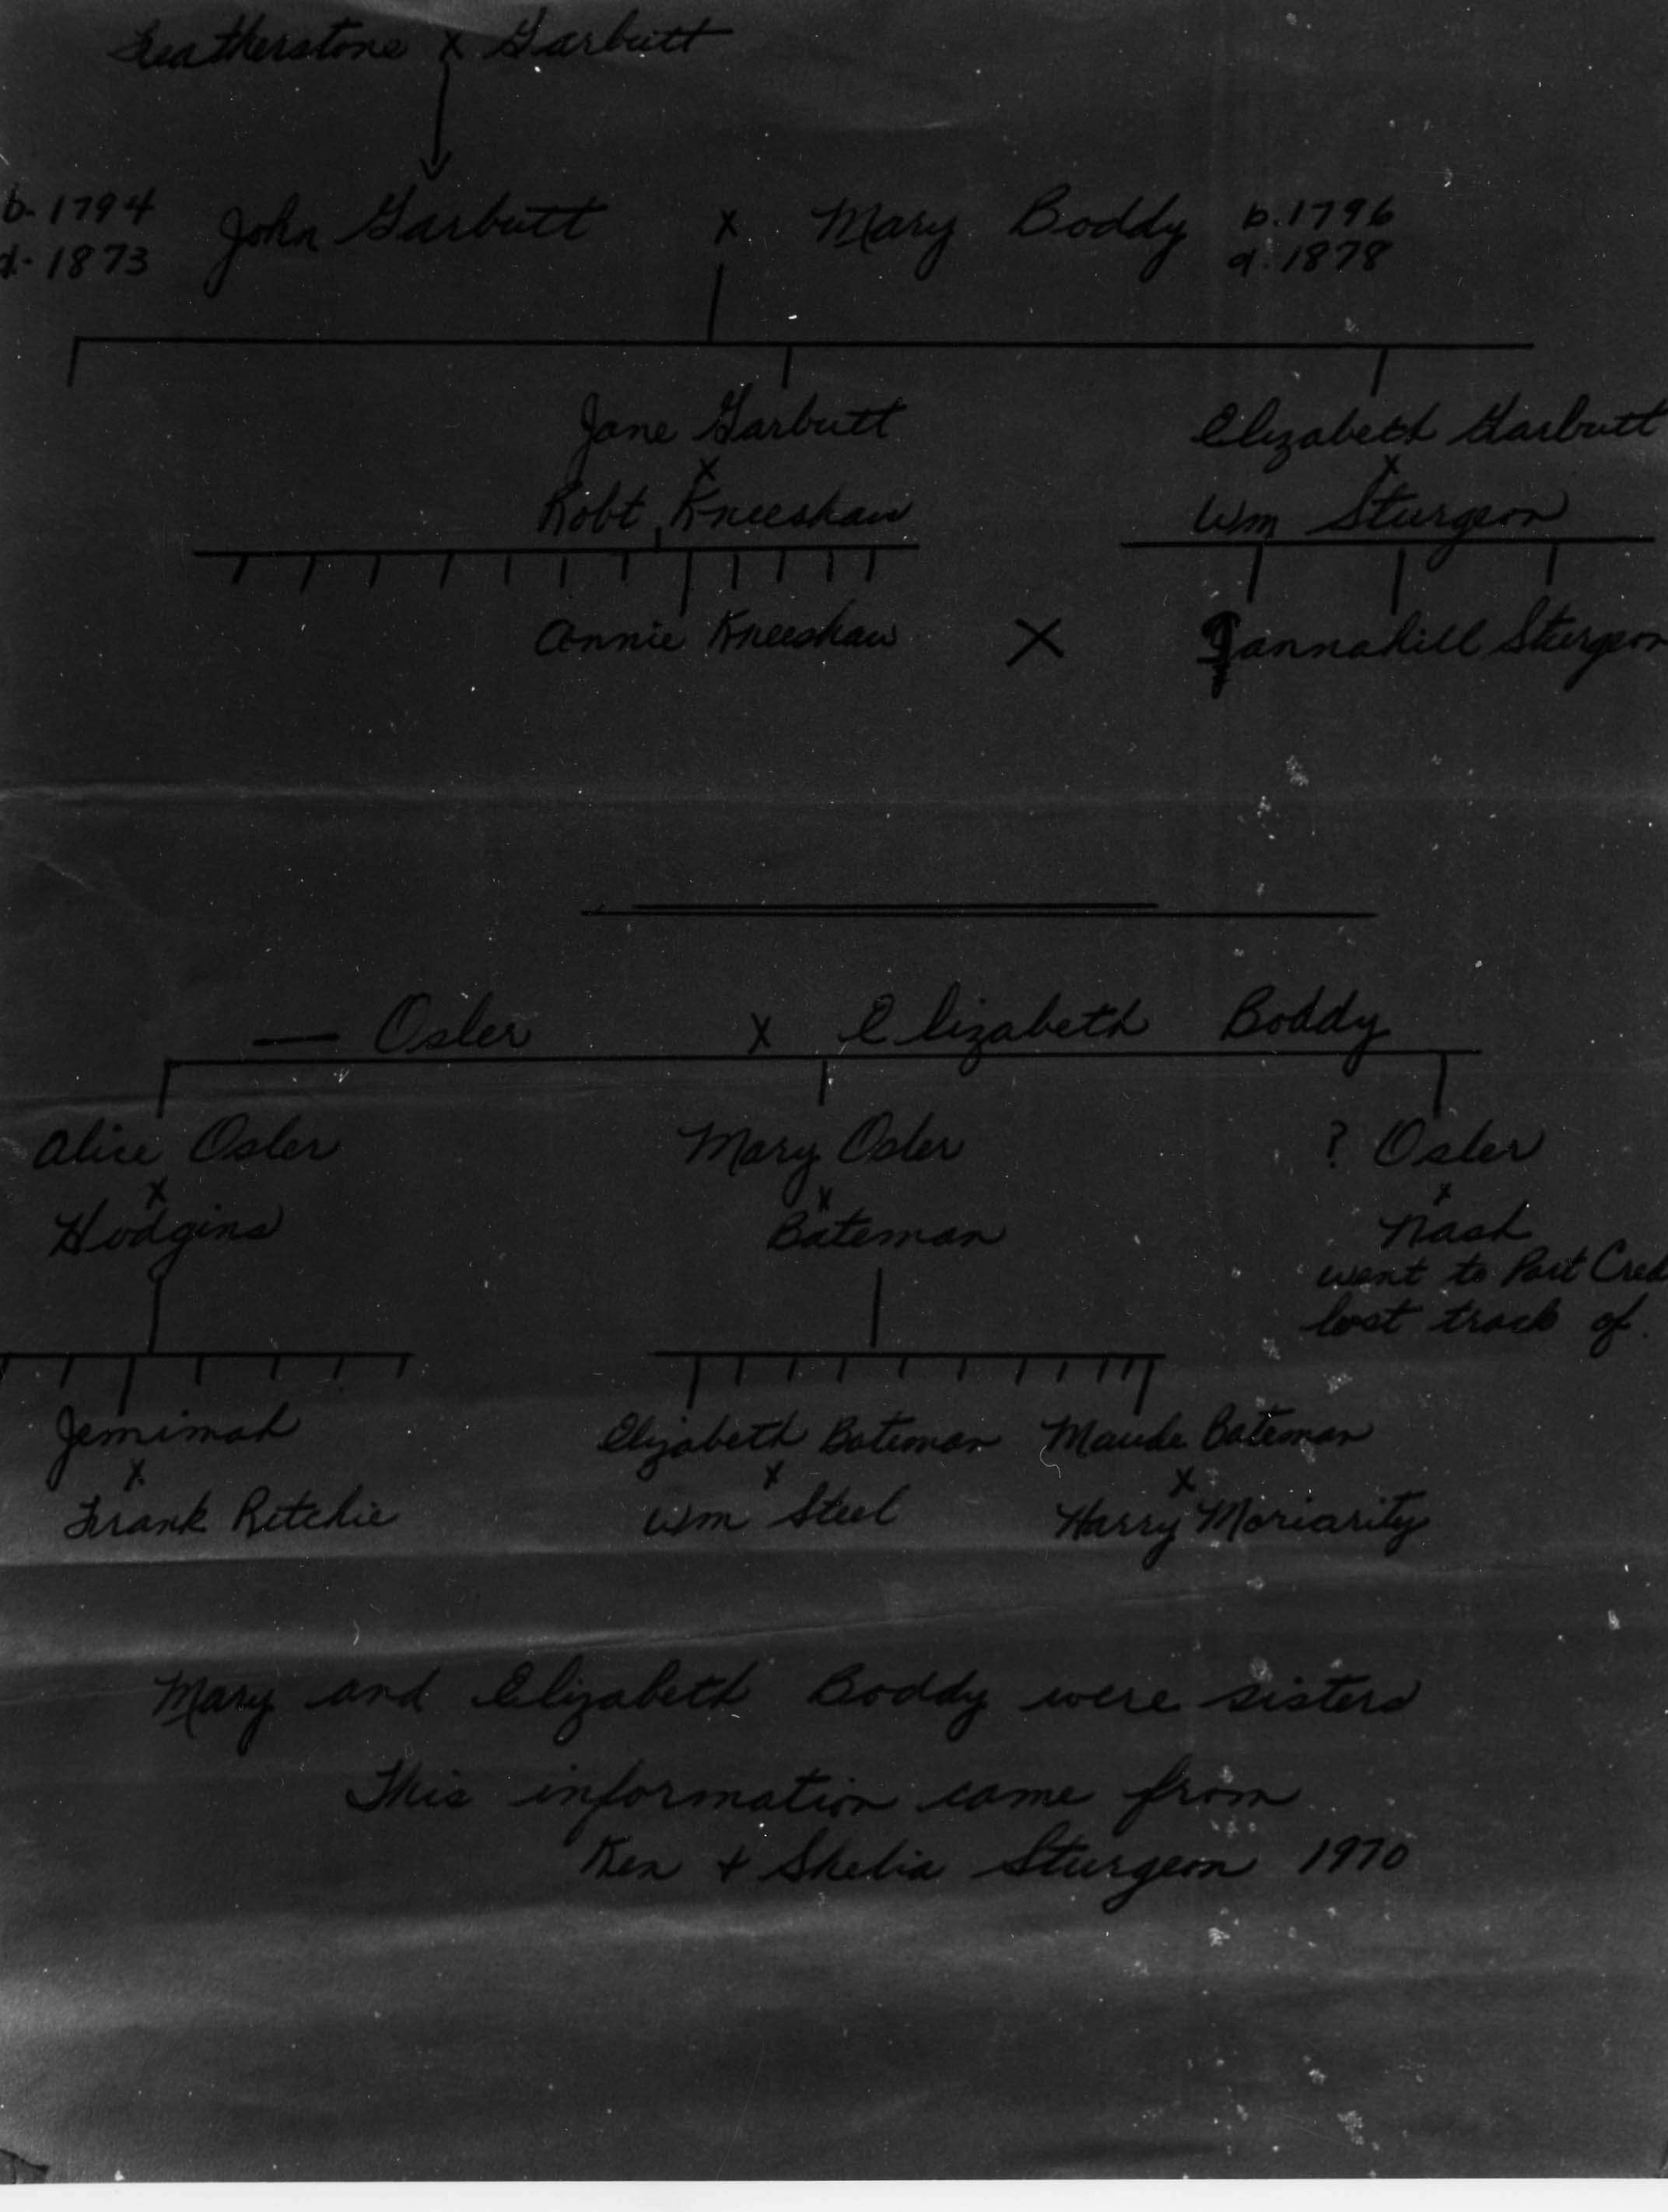 Featherstone x Garbutt
b. 1794 John Garbutt x Mary Boddy b. 1796
d. 1873 d. 1878
Jane Garbutt Elizabeth Garbutt
x x
Robt Kneeshaw Wm Sturgeon
Annie Kneeshaw X Tannahill Sturgeon
— Osler x Elizabeth Boddy
Alice Osler Mary Osler ? Osler
x x x
Hodgins Bateman Nash
went to Port Cred
lost track of.
Jemimah Elizabeth Bateman Maude Bateman
x x x
Frank Ritchie Wm Steel Harry Moriarity
Mary and Elizabeth Boddy were sisters
This information came from
Ken + Shelia Sturgeon 1970